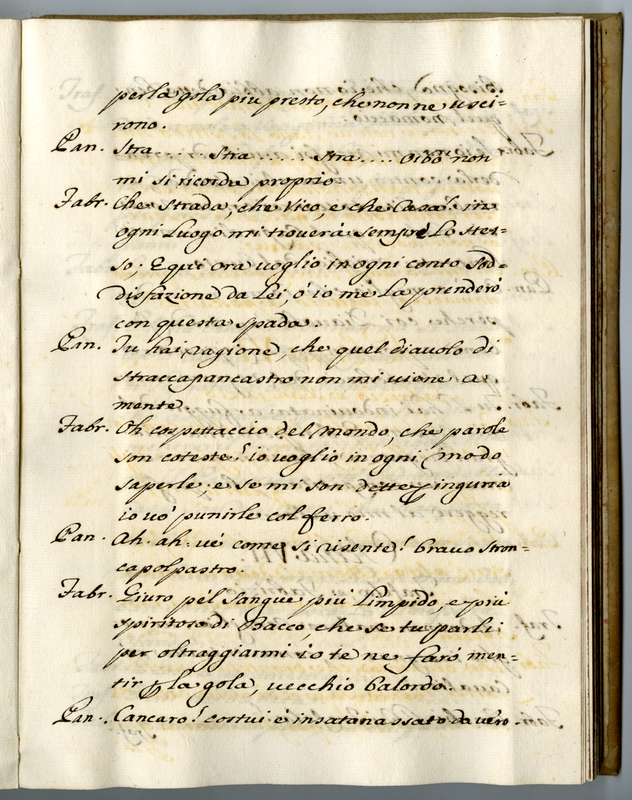 per la gola piu presto, che non ne usci=
rono.
Pan. Stra.... Stra.... Stra.... oibò non
mi si ricorda proprio
Fabr. Che Strada, che Vico, e che Casa! in
ogni Luogo mi troverà sempre Lo stes=
so; E qui ora voglio in ogni conto Sod=
disfazione da Lei, ó io me La prenderó
con questa spada.
Pan. Tu hai ragione, che quel diavolo di
straccapancastro non mi viene a
mente.
Fabr. Oh cospettaccio del Mondo, che parole
son coteste! io voglio in ogni modo
saperle; e se mi son dette p inguria
io vo' punirle col ferro.
Pan. Ah. ah. vé come si risente! bravo Stron=
capolpastro.
Fabr. Giuro pel Sangue piu Limpido, e piu
spiritoso di Bacco, che se tu parli
per oltraggiarmi io te ne faró men=
tir p la gola, vecchio balordo.
Pan. Cancaro! costui é insatanassato da vero.